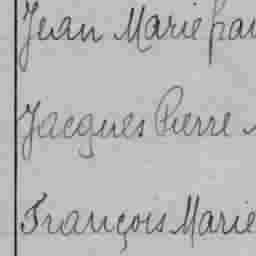 Jean Marie fran
Jacques Pierre
François Marie